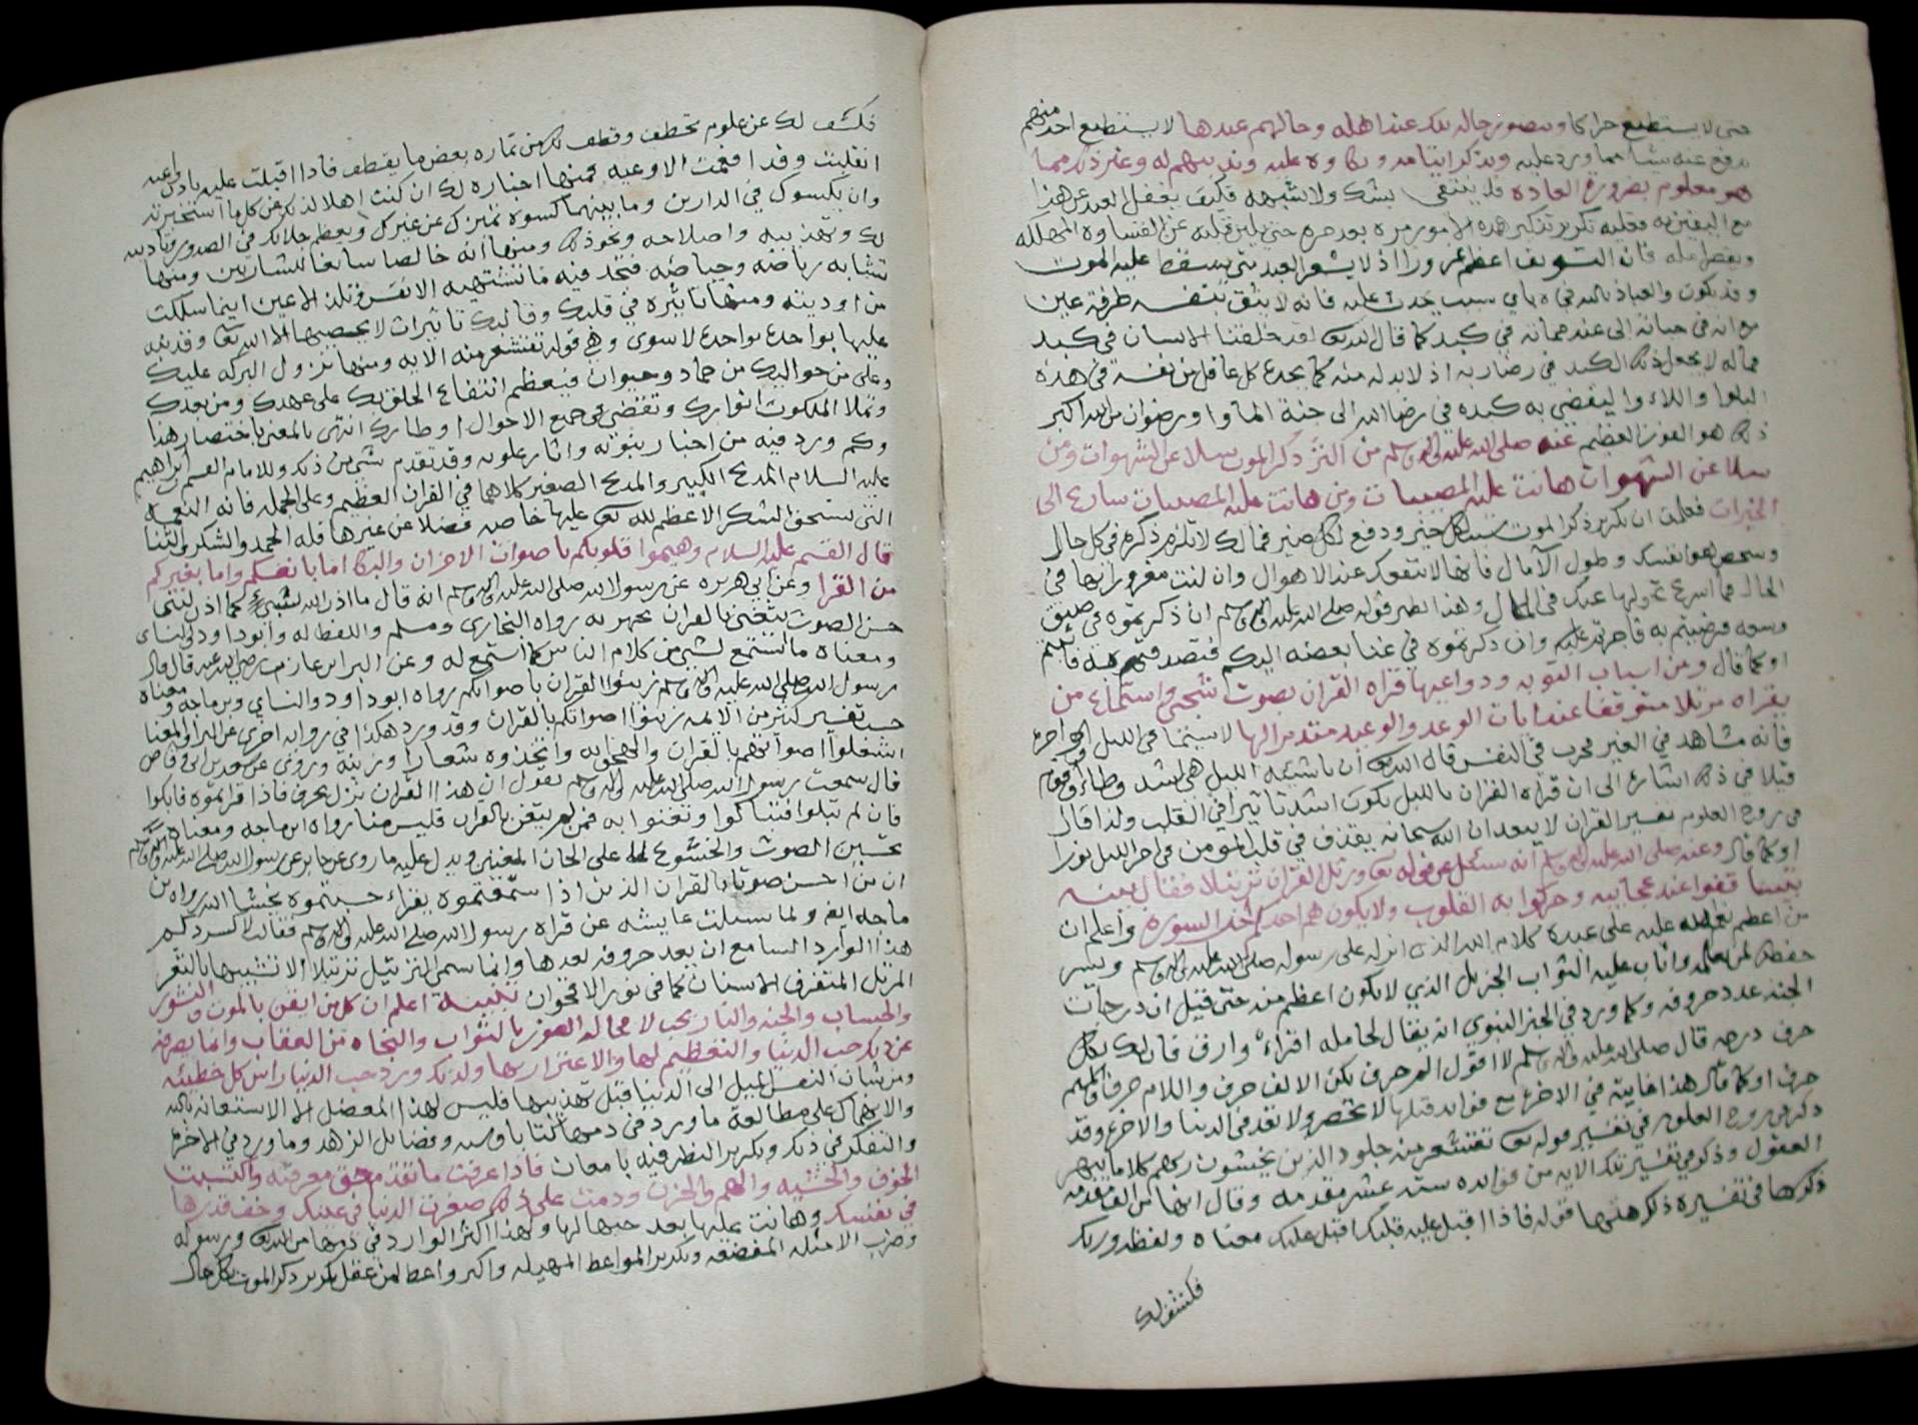 حتى لا يستطيع حراكا ويتصور حاله تلك عند اهله وحالهم عندها لا يستطيع احد منهم
يدفع عنه شيئا مما ورد عليه ويتذكر ايتامه وبكاوه عليه وندبهم له وغير ذلك مما
هو معلوم بضرورة العادة فلا ينتفي بشك ولا شبهه فكيف يغفل العبد عن هذا
مع اليقين به فعليه تكرير تذكير هذه الامور مره بعد مره حتى يلين قلبه عن القساوه المهلكه
ويقصر امله فان التسويف اعظم غرورا اذ لا يشعر العبد متى يسقط عليه الموت
وقد يكون والعياذ بالله في باي سبب يحدث عليه فانه لا يثق بنفسه طرفة عين
مع انه في حياته الى عند مماته في كبد كما قال الله تعالى لقد خلقنا الانسان في كبد
فما له لا يجعل ذلك الكبد في رضا ربه اذ لا بد له منه كما يخدع كل عاقل من نفسه في هذه
البلوا واللاوا ليفضي به كبده في رضا الله الى جنة الماوا ورضوان من الله اكبر
ذلك هو الفوز العظيم عنه صلى الله عليه واله وسلم من اكثر ذكر الموت سلا عن الشهوات ومن
سلا عن الشهوات هانت عليه المصيبات ومن هانت عليه المصيبات سارع الى
الخيرات فعلمت ان تكرير ذكر الموت سبب لكل خير ودفع لكل ضير فما لك لا تلزم ذكره في كل حال
وطول الآمال فانها لا تنفعك عند الاهوال وان كنت مغرورا بها في
الحال فما اسرع تحولها عنك في المال وهذا نظير قوله صلى الله عليه واله وسلم ان ذكرتموه في ضيق
وسعه فرضيتم به فاجرتم عليه وان ذكرتموه في غنا بغضه اليكم فتصدقتم به فاثبتم
او كما قال ومن اسباب التوبه ودواعيها قراة القران بصوت شجي واستماع من
يقراه مرتلا متوقفا عند ايات الوعد والوعيد متدبرا لها لا سيما في الليل او اخره
فانه مشاهد في الغير مجرب في النفس قال الله تعالى ان ناشئة الليل هي اشد وطاء واقوم
قيلا في ذلك اشارة الى ان قراة القران بالليل يكون اشد تاثيرا في القلب ولذا قال
في بروج العلوم تفسير القران لا يبعد ان الله سبحانه يقذف في قلب المومن في اخر الليل نورا
او كما قال وعنه صلى الله عليه واله وسلم انه سئل عن قوله تعالى ورتل القران ترتيلا فقال بينه
تبيينا قفوا عند عجايبه وحركوا به القلوب ولا يكون هم احدكم اخر السورة واعلم ان
من اعظم نعم الله عليه على عبده كلام الله الذي انزله على رسوله صلى الله عليه واله وسلم ويسر
حفظه لمن علمه واثاب عليه الثواب الجزيل الذي لا يكون اعظم منه حتى قيل ان درجات
الجنه عدد حروفه وكما ورد في الخبر النبوي انه يقال لحامله اقراء وارق فان لك بكل
حرف درجه قال صلى الله عليه واله وسلم لا اقول الم حرف بل الالف حرف واللام حرف والميم
حرف او كما قال هذا غايته في الاخرة مع فوايد قبلها لا تحصر ولا تعد في الدنيا والاخره وقد
ذكر في بروج العلوم في تفسير قوله تعالى تقشعر منه جلود الذين يخشون ربهم كلاما يبهر
العقول وذكر في تفسير تلك الايه من فوايده ستة عشر مقدمه وقال انها من الف مقدمه
ذكرها في تفسيره ذلك منها قوله فاذا اقبل عليه قلبك اقبل عليك معناه ولفظه وربك
فكشف لك
فكشف لك عن علوم تخطف وقطف لك من ثماره بعض ما يقطف فاذا اقبلت عليه باذن واعيه
انقلبت وقد افعمت الاوعيه فمنها اخباره لك ان كنت اهلا لذلك عن كل ما استخبرته
وان يكسوك في الدارين وما بينهما كسوة تميزك عن غيرك ويعظم جلالك في الصدور وتاديبه
لك وتهذيبه واصلاحه ونحو ذلك ومنها انه خالصا سائغا للشاربين ومنها
تشابه رياضه وحياضه فتجد فيه ما تشتهيه الانفس وتلذ الاعين اينما سلكت
من اوديته ومنها تاثيره في قلبك وقالبك تاثيرات لا يحصيها الا الله تعالى وقد نبه
عليها بواحدة بواحدة لا سوى وهي قوله تقشعر منه الايه ومنها نزول البركه عليك
وعلى من حواليك من جماد وحيوان فيعظم انتفاع الخلق بك على عهدك ومن بعدك
وتملا الملكوت انوارك وتقضي في جميع الاحوال اوطارك انتهى بالمعنى باختصار هذا
وكم ورد فيه من اخبار نبوته واثار علويه وقد تقدم شي من ذلك وللامام القسم بن ابراهيم
عليه السلام المديح الكبير والمديح الصغير كلاهما في القران العظيم وعلى الجمله فانه النعمه
التي يستحق الشكر الاعظم لله تعالى عليها خاصه فضلا عن غيرها فله الحمد والشكر والثنا
قال القسم عليه السلام وهيموا قلوبكم باصوات الاحزان والبكا اما بانفسكم واما بغيركم
من القرا وعن ابي هريره عن رسول الله صلى الله عليه واله وسلم انه قال ما اذن الله لشيء كما اذن لنبي
حسن الصوت يتغنى بالقران يجهر به رواه البخاري ومسلم واللفظ له وابو داود والنساي
ومعناه ما استمع لشي من كلام الناس كما استمع له وعن البرا بن عازب رضي الله عنه قال قال
رسول الله صلى الله عليه واله وسلم زينوا القران باصواتكم رواه ابو داود والنساي وابن ماجه ومعناه
حسب تفسير كثير من الايمه زينوا اصواتكم بالقران وقد ورد هكذا في روايه اخرى عن البرا والمعنا
اشغلوا اصواتكم بالقران والهجوا به واتخذوه شعارا وزينة وروى عن سعد بن ابي وقاص
قال سمعت رسول الله صلى الله عليه واله وسلم يقول ان هذا القران نزل بحزن فاذا قراتموه فابكوا
فان لم تبكوا فتباكوا وتغنوا به فمن لم يتغن بالقران فليس منا رواه ابن ماجه ومعناه
تحسين الصوت والخشوع لا على الحان المغنين ويدل عليه ما روي عن جابر عن رسول الله صلى الله عليه واله وسلم
ان من احسن صوتا بالقران الذين اذا سمعتموه يقراء حسبتموه يخشا الله رواه بن
ماجه ايضو ولما سئلت عايشه عن قراة رسول الله صلى الله عليه واله وسلم فقالت لا كسردكم
هذا لو اراد السامع ان يعد حروفه لعدها وانما سمي الترتيل ترتيلا الا تشبيها بالثغر
المرتل المتفرق الاسنان كما في نور الاقحوان تنبيه اعلم ان كل من ايقن بالموت والنشور
والحساب والجنه والنار يحب لا محاله الفوز بالثواب والنجاه من العقاب وانما يصرفه
عن ذلك حب الدنيا والتعظيم لها والاغترار بها ولذلك ورد حب الدنيا راس كل خطيئه
ومن شان النفس الميل الى الدنيا قبل تهذيبها فليس لهذا المعضل الا الاستعانه بالله
والانهماك على مطالعة ما ورد في ذمها كتابا وسنه وفضائل الزهد وما ورد في الاخرة
والتفكر في ذلك وتكرير النظر فيه بامعان فاذا عرفت ما تقدم حق معرفته واكتسبت
الخوف والخشيه والهم والحزن ودمت على ذلك صغرت الدنيا في عينك وخف قدرها
في نفسك وهانت عليها بعد حبها لها ولهذا اكثر الوارد في ذمها من الله تعالى ورسوله
وضرب الامثله المفضعه وتكرير المواعظ المهيله واكبر واعظ لمن عقل تكرير ذكر الموت بكل حال